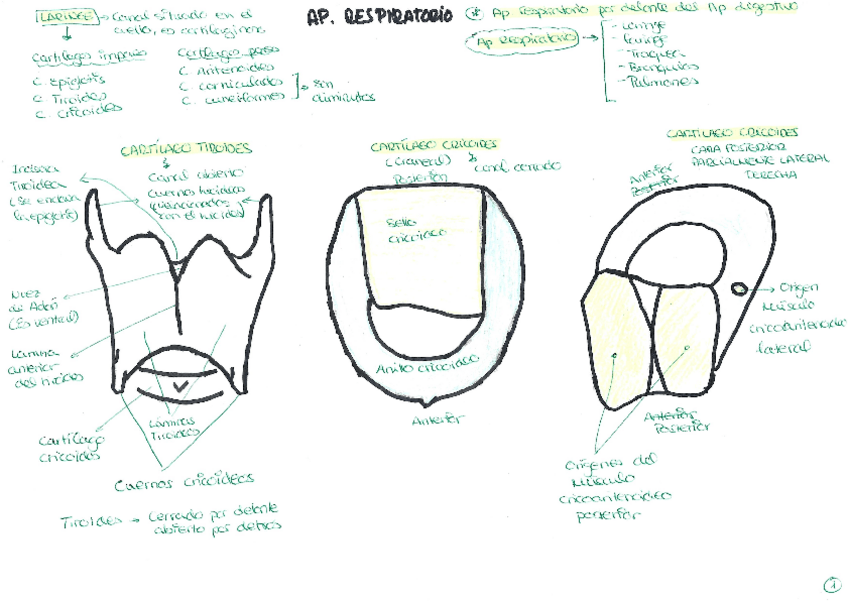 AP. RESPIRATORIO
LARINGE → Canal situado en el
cuello, es cartilaginoso
Cartílagos impares
C. Epiglotis
C. Tiroides
C. Cricoides
Cartílagos pares
C. Aritenoides
C. corniculados
C. cuneiformes
son
diminutos
* Ap respiratorio por delante del Ap digestivo
Ap Respiratorio →
- Laringe
- Tráquea
- Bronquios
- Pulmones
CARTÍLAGO TIROIDES
Canal abierto
Cuernos tiroideos
con el hioides)
Incisura
Tiroidea
(Se encaja
la epiglotis)
Nuez
de Adán
(Es ventral)
Lamina
anterior
del tiroides
Cartílago
Cricoides
Laminas
Tiroideas
Cuernos cricoideos
Tiroides → Cerrado por delante
abierto por detrás
CARTÍLAGO CRICOIDES
(Craneal)
Posterior
canal cerrado
Sello
cricoideo
Anillo cricoideo
Anterior
CARTÍLAGO CRICOIDES
CARA POSTERIOR
PARCIALMENTE LATERAL
DERECHA
Anterior
Posterior
Origen
Músculo
cricoaritenoideo
lateral
Anterior
Posterior
Orígenes del
Músculo
cricoaritenoideo
posterior
1